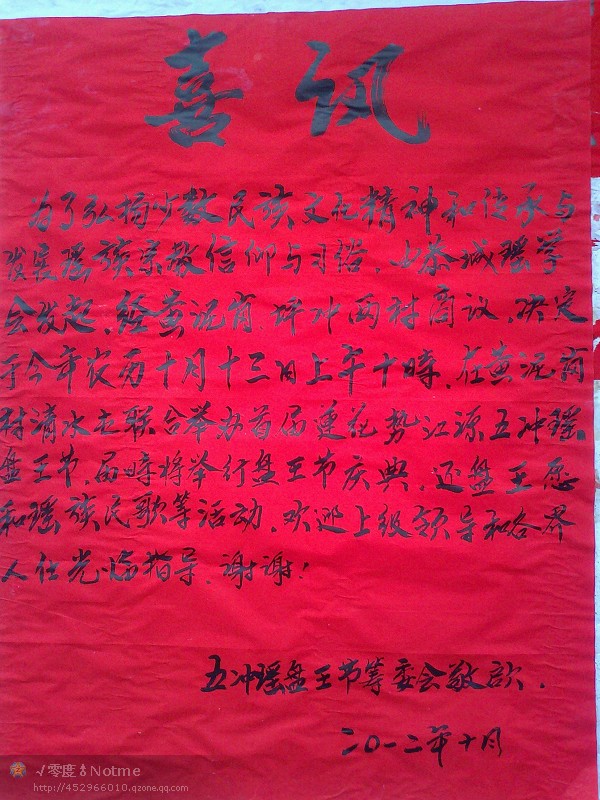 喜讯
为了弘扬少数民族文化精神和传承与
发展瑶族宗教信仰与习俗，由恭城瑶学
会发起，经黄泥岗、坪冲两村商议，决定
于今年农历十月十三日上午十時，在黄泥岗
村清水立联合举办首届莲花势江源五冲瑶
盘王节，届時将举行盘王节庆典，还盘王愿
和瑶族民歌等活动，欢迎上级领导和各界
人仕光临指导，谢谢！
五冲瑶盘王节筹委会敬
二〇一二年十月
√零度Notme
http://452966010.qzone.qq.com